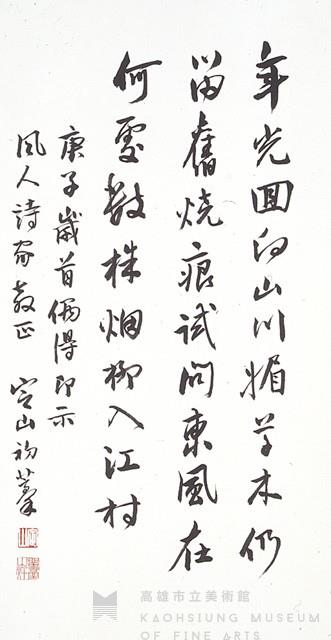 年光回向山川媚草木仍
留舊燒痕試問東風在
何處數株烟柳入江村
庚子歲首偶得即示
風人詩家教正 定山初藁
高雄市立美術館
KAOHSIUNG MUSEUM
OF FINE ARTS